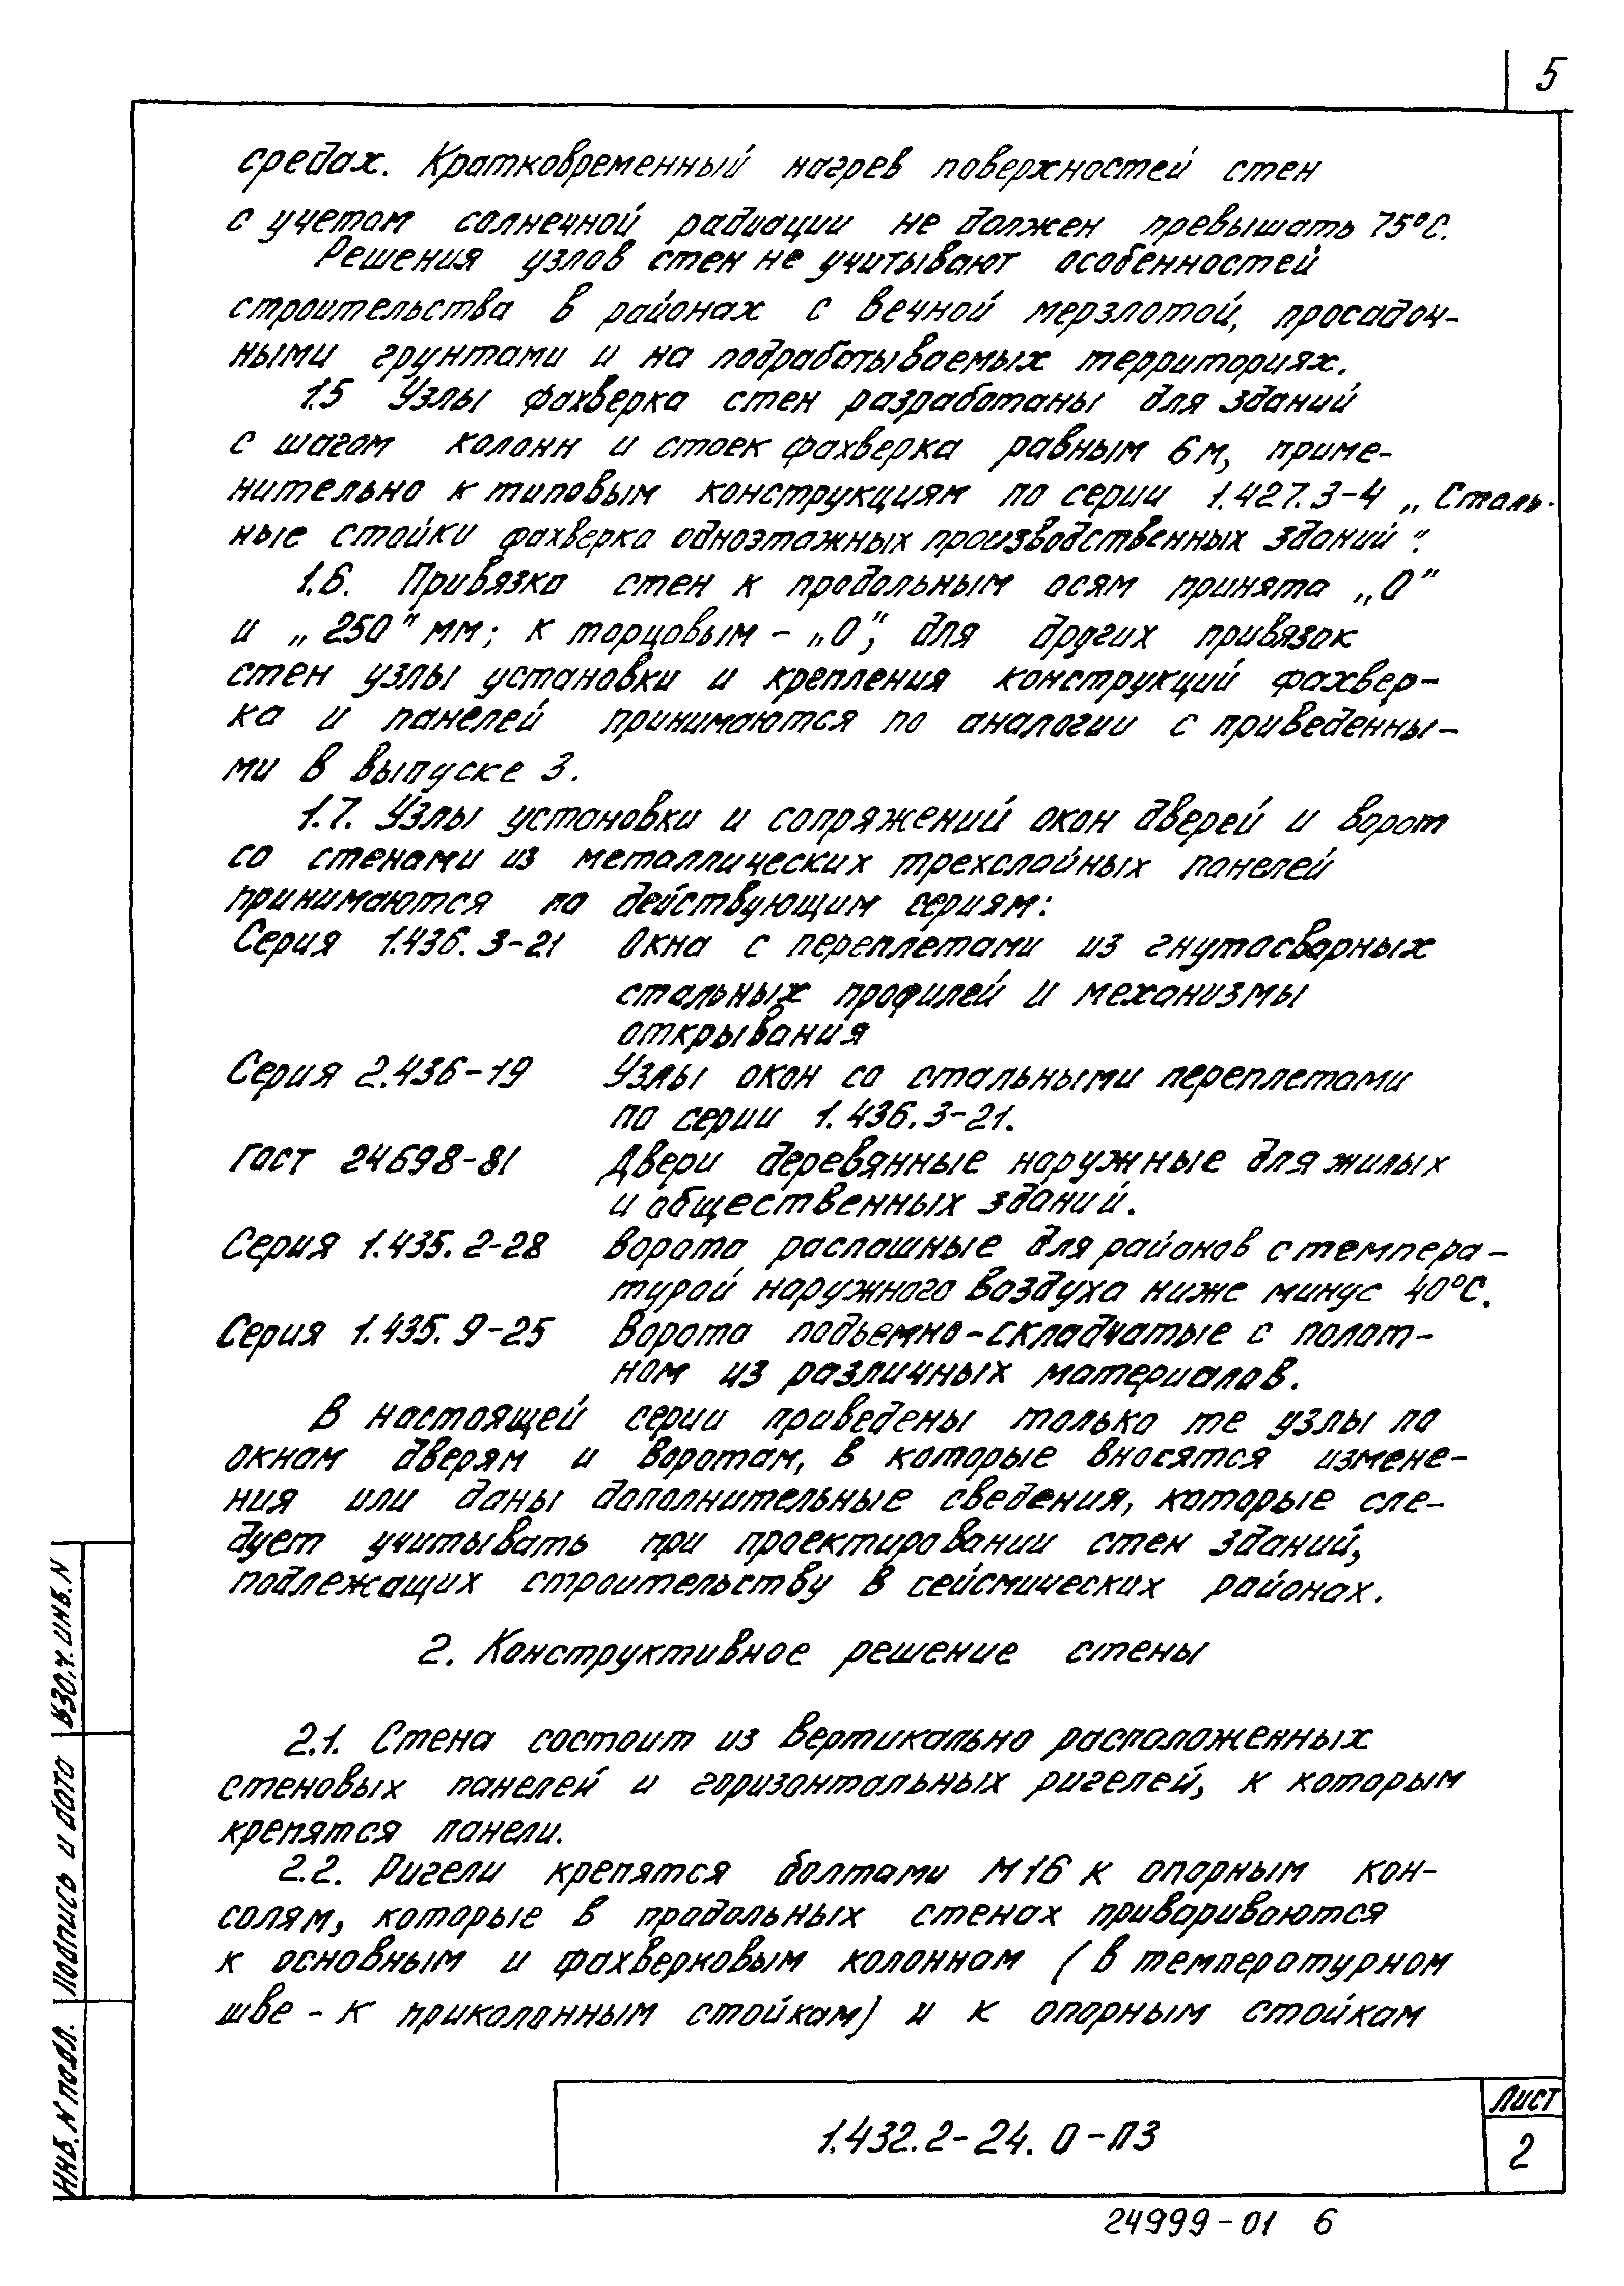 5
средах. Кратковременный нагрев поверхностей стен
с учетом солнечной радиации не должен превышать 75°С.
Решения узлов стен не учитывают особенностей
строительства в районах с вечной мерзлотой, просадоч-
ными грунтами и на подрабатываемых территориях.
1.5 Узлы фахверка стен разработаны для зданий
с шагом колонн и стоек фахверка равным 6м, приме-
нительно к типовым конструкциям по серии 1.427.3-4 „Сталь-
ные стойки фахверка одноэтажных производственных зданий".
1.6. Привязка стен к продольным осям принята „0"
и „250" мм; к торцовым - „0"; для других привязок
стен узлы установки и крепления конструкций фахвер-
ка и панелей принимаются по аналогии с приведенны-
ми в выпуске 3.
1.7. Узлы установки и сопряжений окон дверей и ворот
со стенами из металлических трехслойных панелей
принимаются по действующим сериям:
Серия 1.436.3-21 Окна с переплетами из гнутосварных
стальных профилей и механизмы
открывания
Серия 2.436-19 Узлы окон со стальными переплетами
по серии 1.436.3-21.
Гост 24698-81 Двери деревянные наружные для жилых
и общественных зданий.
Серия 1.435.2-28 Ворота распашные для районов с темпера-
турой наружного воздуха ниже минус 40°С.
Серия 1.435.9-25 Ворота подъемно-складчатые с полот-
ном из различных материалов.
В настоящей серии приведены только те узлы по
окнам дверям и воротам, в которые вносятся измене-
ния или даны дополнительные сведения, которые сле-
дует учитывать при проектировании стен зданий,
подлежащих строительству в сейсмических районах.
2. Конструктивное решение стены
2.1. Стена состоит из вертикально расположенных
стеновых панелей и горизонтальных ригелей, к которым
крепятся панели.
2.2. Ригели крепятся болтами М16 к опорным кон-
солям, которые в продольных стенах привариваются
к основным и фахверковым колоннам (в температурном
шве - к приколонным стойкам) и к опорным стойкам
Взам. инв. N
Подпись и дата
Инв. N подл.
1.432.2-24.0-ПЗ
Лист
2
24999-01 6